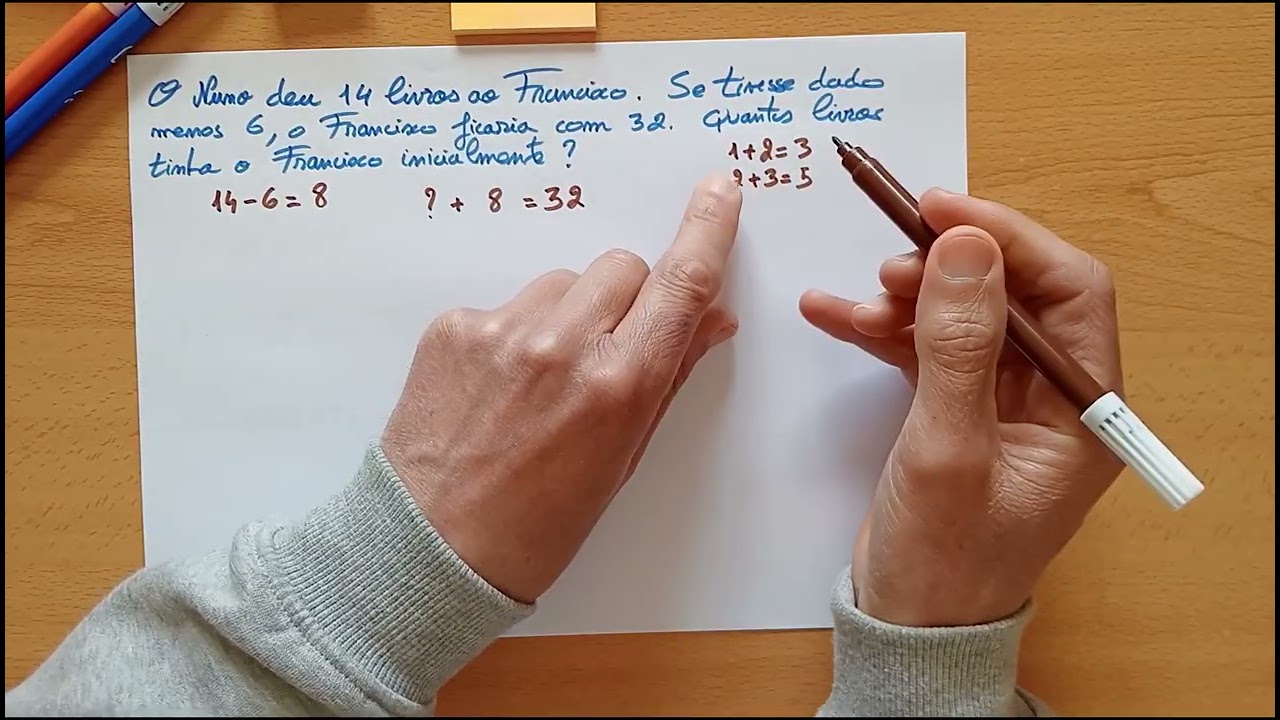 O Nuno deu 14 livros ao Francisco. Se tivesse dado
menos 6, o Francisco ficaria com 32. Quantos livros
tinha o Francisco inicialmente?
1+2=3
2+3=5
14-6=8 ? + 8 =32